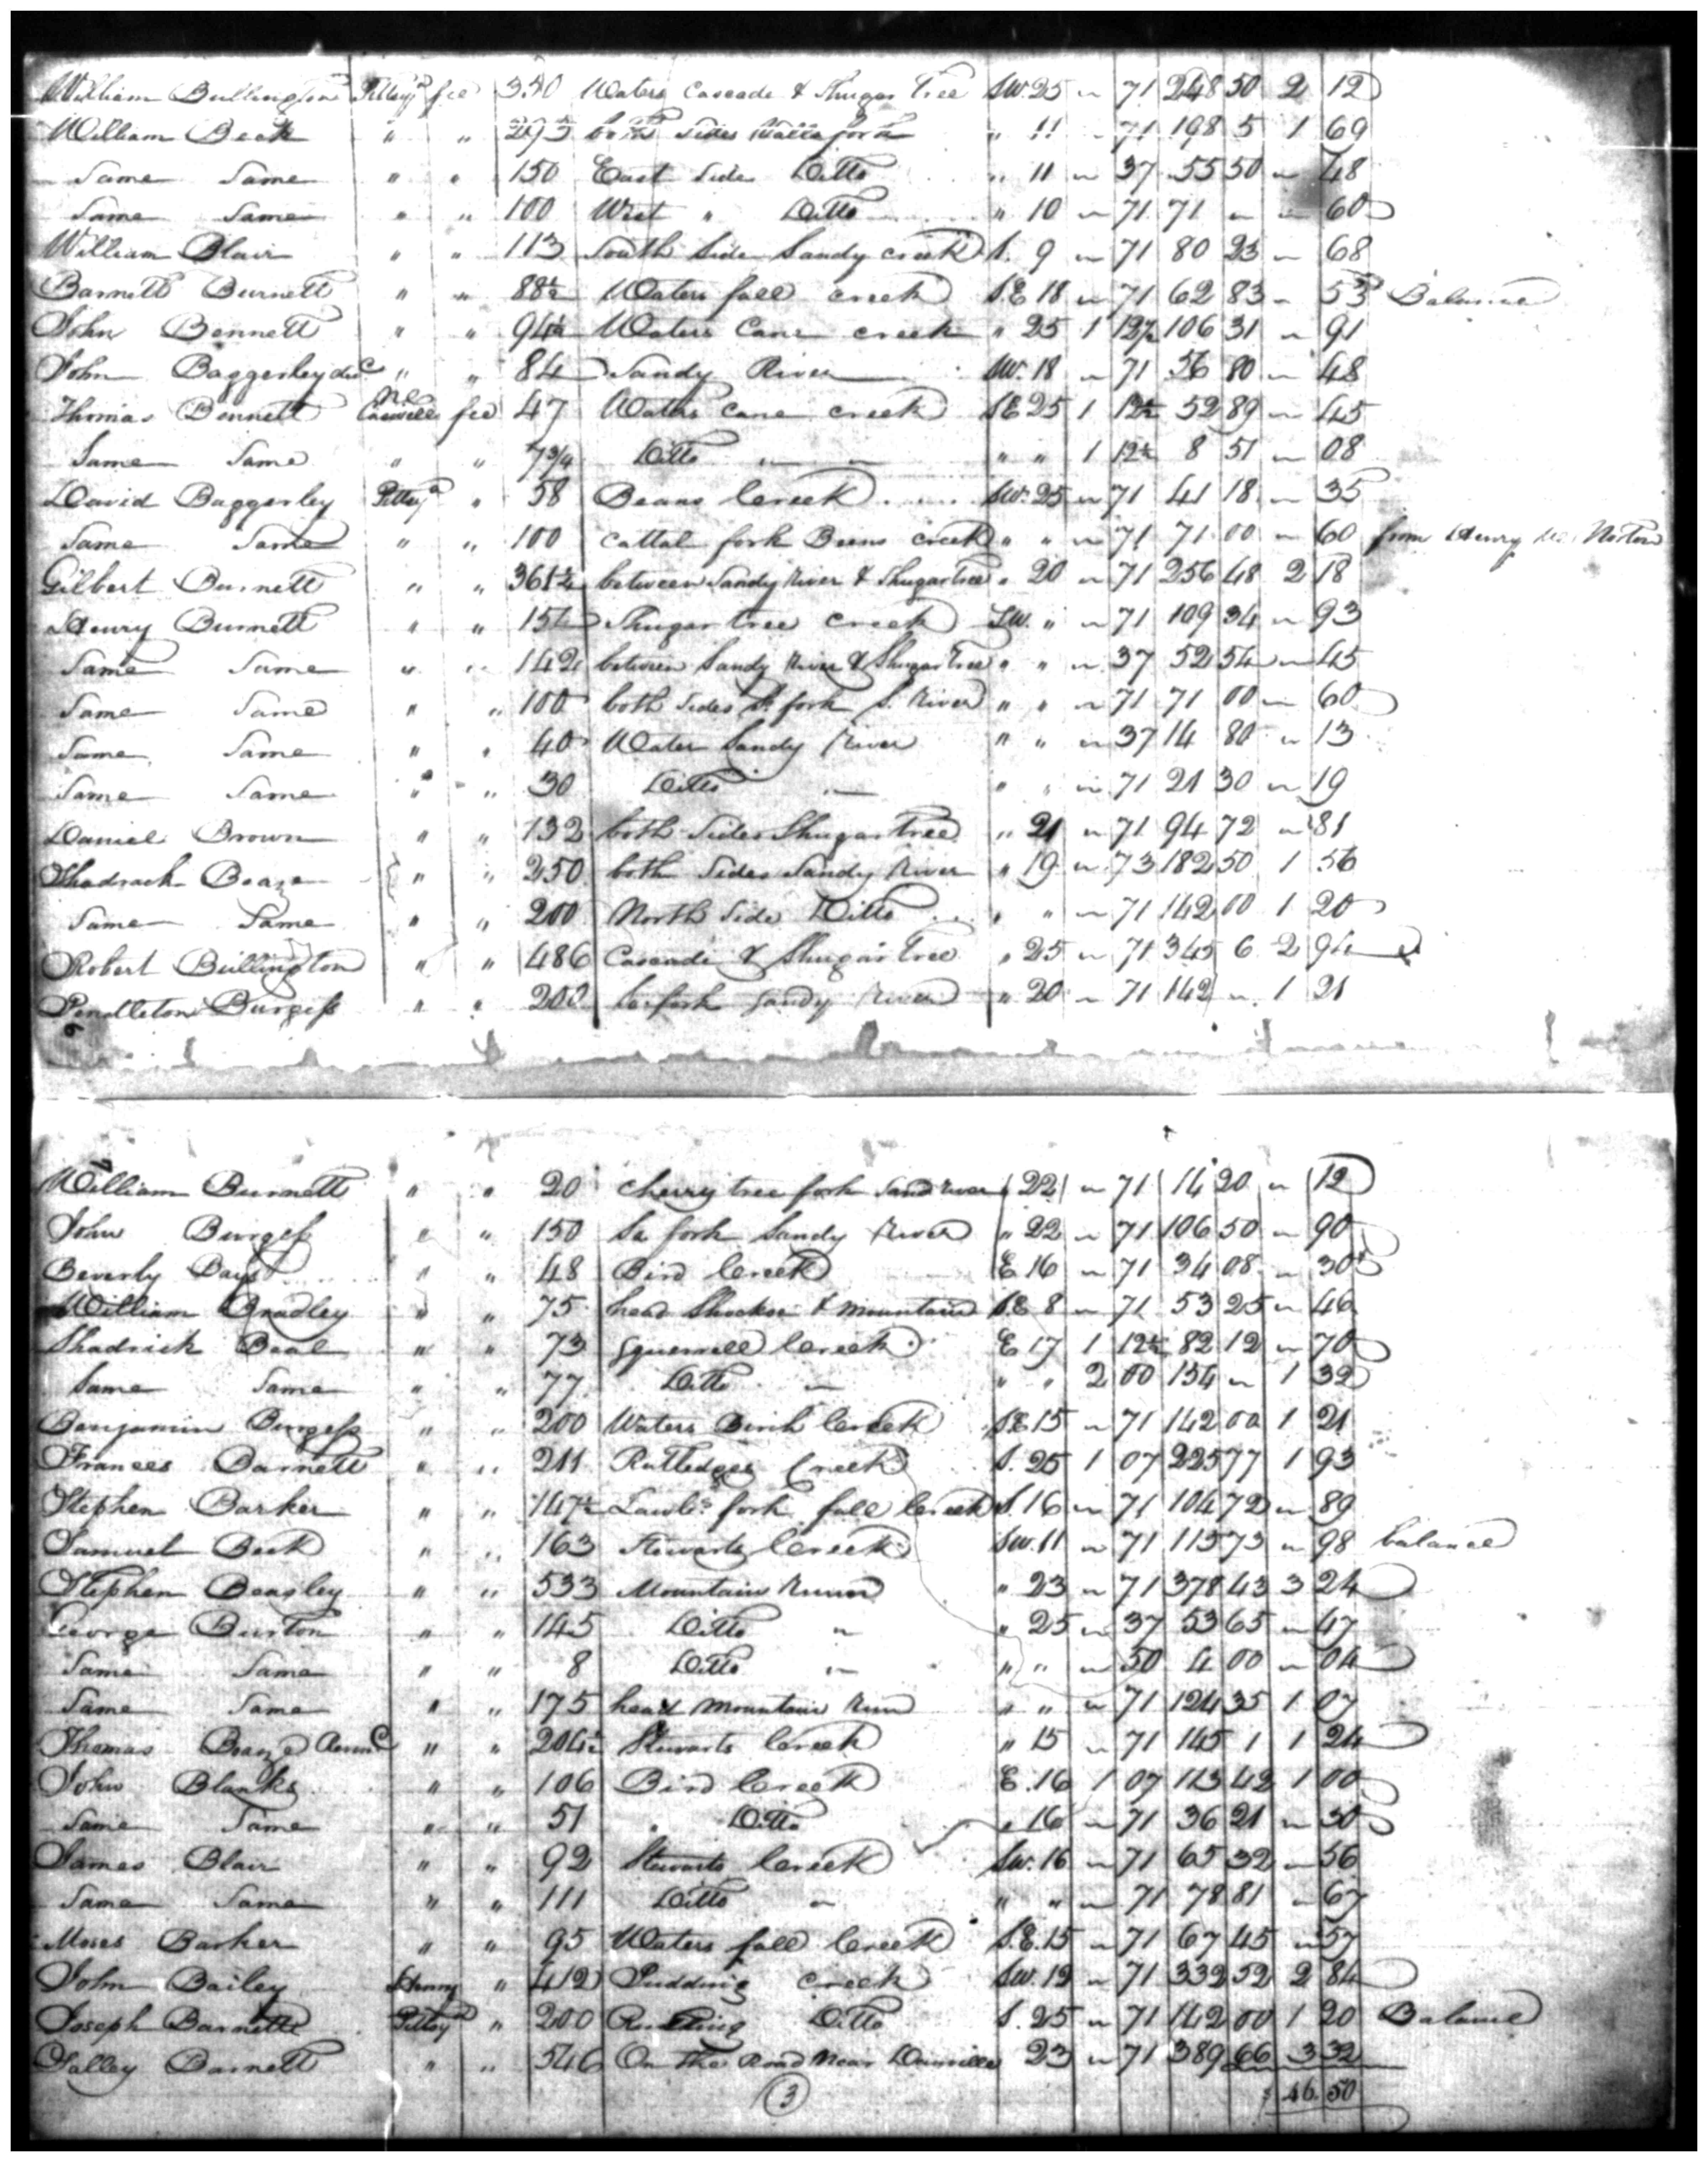 William Bullington Pittsy fee 350 Waters Cascade & Shugar Tree SW. 25 " 71 248 50 2 12
William Beck " " 279 both sides " 11 " 71 198 5 1 69
Same Same " " 150 East Side Ditto " 11 " 37 55 50 " 48
Same Same " " 100 West " Ditto " 10 " 71 71 " " 60
William Blair " " 113 South Side Sandy creek S. 9 " 71 80 23 " 68
Barnett Burnett " " 88½ Waters fall creek S.E 18 " 71 62 83 " 53 Balance
John Bennett " " 94½ Waters Cane creek " 25 1 12½ 106 31 " 91
John Baggerley decd " " 84 Sandy River SW. 18 " 71 56 80 " 48
Thomas Bennett NC Caswell fee 47 Waters Cane creek SE 25 1 12½ 52 89 " 45
Same Same " " 7¾ Ditto " " 1 12½ 8 51 " 08
David Baggerley Pittsy " 58 Beans Creek SW. 25 " 71 41 18 " 35
Same Same " " 100 Cattal fork Beens creek " " " 71 71 00 " 60 from Henry Norton
Gilbert Burnett " " 361½ between Sandy River & Shugar Tree " 20 " 71 256 48 2 18
Henry Burnett " " 154 Shugar tree creek SW. " " 71 109 34 " 93
Same Same " " 142 between Sandy River & Shugar Tree " " " 37 52 54 " 45
Same Same " " 100 both Sides So fork S. River " " " 71 71 00 " 60
Same Same " " 40 Water Sandy River " " " 37 14 80 " 13
Same Same " " 30 Ditto " " " 71 21 30 " 19
Daniel Brown " " 132 both Sides Shugar Tree " 21 " 71 94 72 " 81
Shadrach Boaze " " 250 both Sides Sandy River " 19 " 73 182 50 1 56
Same Same " " 200 North Side Ditto " " " 71 142 00 1 20
Robert Bullington " " 486 Cascade & Shugar Tree " 25 " 71 345 6 2 94
Pendleton Burgess " " 200 So. fork Sandy River " 20 " 71 142 " 1 21
William Burnett " " 20 Cherry tree fork Sand River " 22 " 71 14 20 " 12
John Burgess " " 150 So fork Sandy River " 22 " 71 106 50 " 90
Beverly Bays " " 48 Bird Creek E 16 " 71 34 08 " 30
William Bradley " " 75 head Shockoe & mountain S.E 8 " 71 53 25 " 46
Shadrick Beal " " 73 Squerrell Creek E 17 1 12½ 82 12 " 70
Same Same " " 77 Ditto " " 2 00 154 " 1 32
Benjamin Burgess " " 200 Waters Birch Creek S.E 15 " 71 142 00 1 21
Frances Barnett " " 211 Rutledges Creek S. 25 1 07 225 77 1 93
Stephen Barker " " 147½ fork fall Creek S. 16 " 71 104 72 " 89
Samuel Beck " " 163 Stewarts Creek SW. 11 " 71 115 73 " 98 balance
Stephen Beasley " " 533 Mountain Runn " 23 " 71 378 43 3 24
George Burton " " 145 Ditto " " 25 " 37 53 65 " 47
Same Same " " 8 Ditto " " " " 50 4 00 " 04
Same Same " " 175 head Mountain Run " " " 71 124 35 1 07
Thomas Boaze " " 204½ Stewarts Creek " 15 " 71 145 1 1 24
John Blanks " " 106 Bird Creek E. 16 1 07 113 42 1 00
Same Same " " 51 " Ditto " 16 " 71 36 21 " 30
James Blair " " 92 Stewarts Creek SW. 16 " 71 65 32 " 56
Same Same " " 111 Ditto " " " " 71 78 81 " 67
Moses Barker " " 95 Waters fall Creek S.E. 15 " 71 67 45 " 57
John Bailey Henry " 412 Pudding creek SW. 12 " 71 332 52 2 84
Joseph Barnett Pittsy " 200 Ditto S. 25 " 71 142 00 1 20 Balance
Salley Barnett " " 546 On the Road Near Danville 23 " 71 389 66 3 32
3 $ 46.50